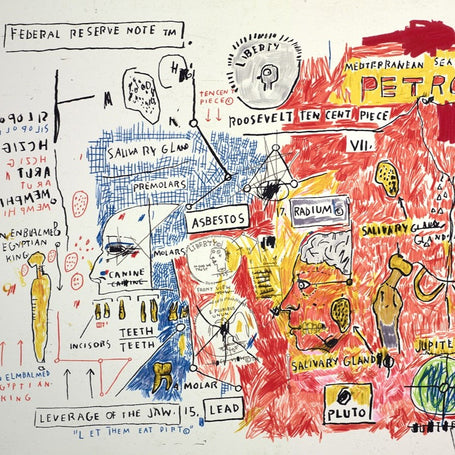 FEDERAL RESERVE NOTE TM.
LIBERTY
MEDITERRANEAN SEA
PETRO
TEN CENT
PIECE©
ROOSEVELT TEN CENT PIECE
VII.
SALIVARY GLAND
PREMOLARS
ASBESTOS
17.
RADIUM©
MEMPHIS
MEMPHIS
EMBALMED
EGYPTIAN
KING
MOLARS
CANINE
CANINE
LIBERTY
FRONT VIEW
SALIVARY GLAND
GLAND
TEETH
INCISORS TEETH
SALIVARY GLAND
JUPITE
A MOLAR
EMBALMED
KING
LEVERAGE OF THE JAW. 15.
LEAD
PLUTO
"LET THEM EAT DIRT©"